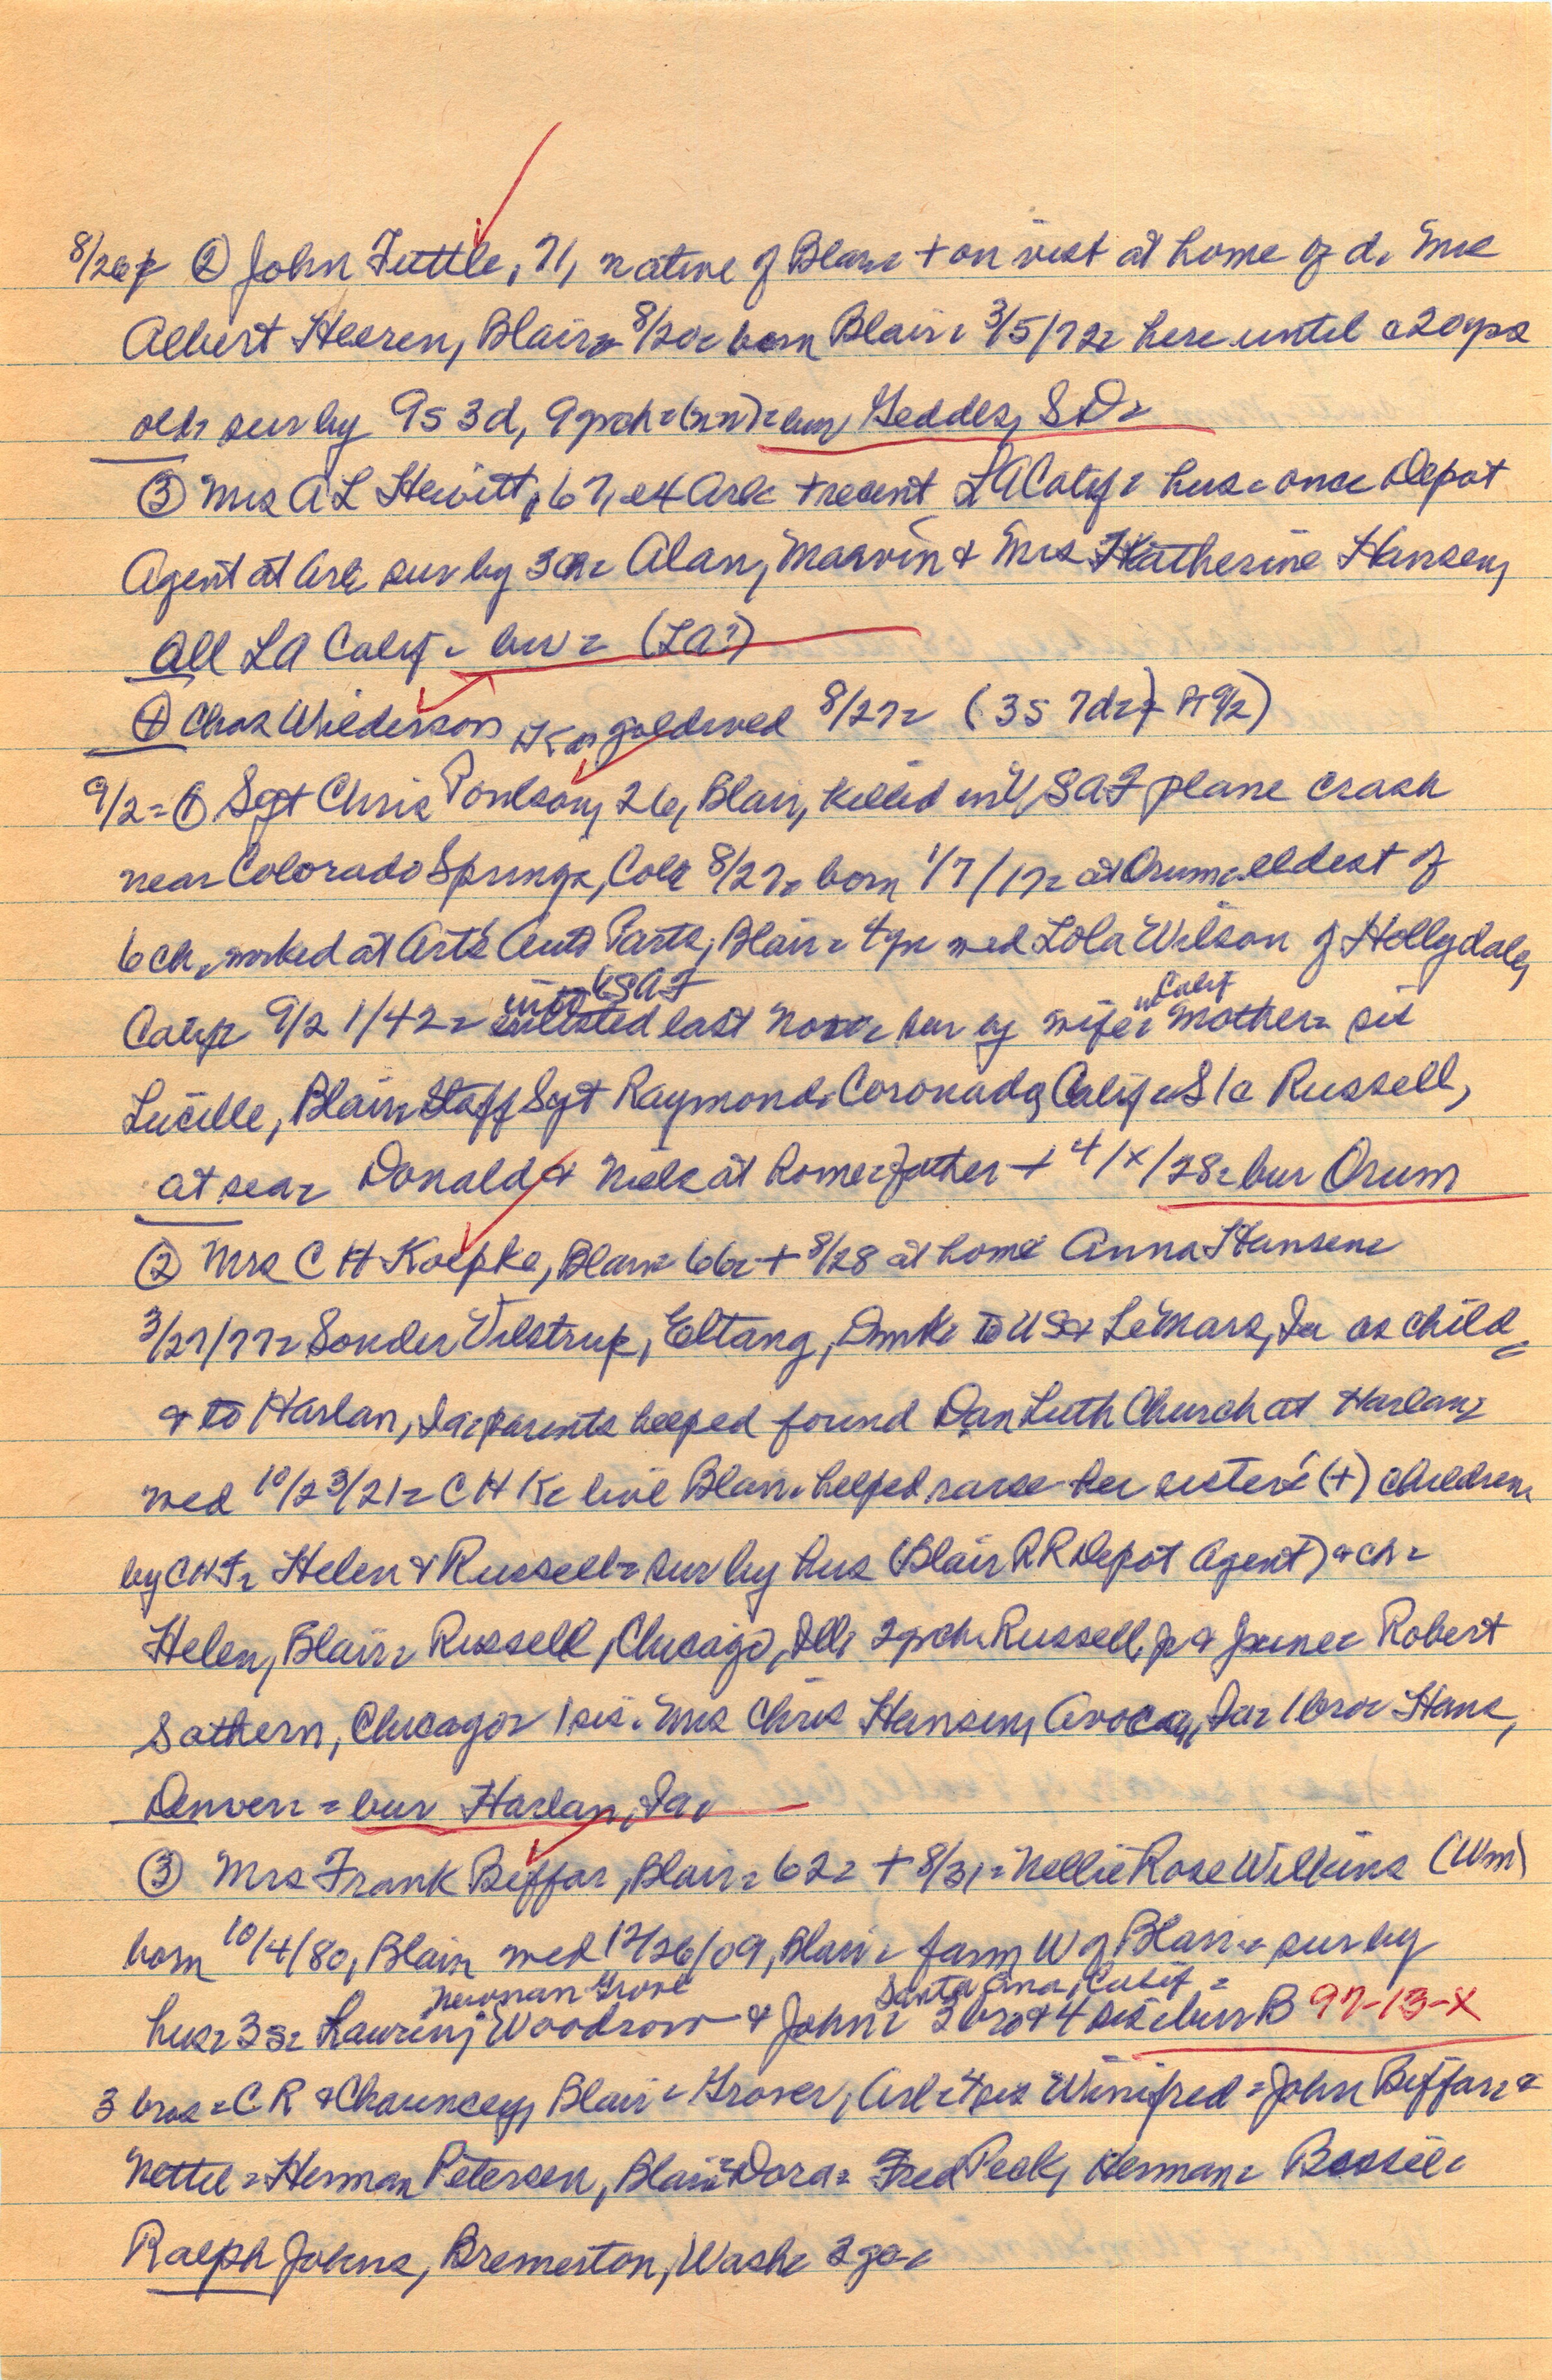 8/26 ② John Tuttle, 71, native of Blair + on visit at home of d. Mrs
Albert Heeren, Blair 8/20 born Blair 3/5/72 here until c20yrs
old sur by 9s 3d, 9grch (nn) bur Geddes, SD
③ Mrs A L Hewitt, 67, ex Arl + recent LA Calif hus once Depot
Agent at Arl sur by 3ch Alan, Marvin & Mrs Katherine Hansen,
All LA Calif bur (LA?)
④ Chas Wilderson gold wed 8/27 (3s 7d)
9/2 = ① Sgt Chris Poulson, 26, Blair, killed in USAF plane crash
near Colorado Springs, Colo 8/27 born 1/7/17 at Orum eldest of
6 ch, worked at Art's Auto Parts, Blair 4yr wed Lola Wilson of Hollydale,
Calif 9/21/42 = into USAF last Nov sur by wife in Calif mother sis
Lucille, Blair Staff Sgt Raymond, Coronado, Calif S/c Russell,
at sea Donald & Niels at home father + 4/x/28 bur Orum
② Mrs C H Koepke, Blair 66 + 8/28 at home Anna Hansen
3/27/77 Sonder Vilstrup, Eltang, Dmk to US & LeMars, Ia as child
& to Harlan, Ia parents helped found Dan Luth Church at Harlan
wed 10/23/21 = C H K live Blair helped raise her sister's (+) children
by CHK Helen & Russell = sur by hus (Blair RR Depot Agent) & ch =
Helen, Blair Russell, Chicago, Ill 2grch Russell, Jr & June Robert
Sothern, Chicago 1 sis. Mrs Chris Hansen, Avoca, Ia 1 bro Hans,
Denver = bur Harlan, Ia.
③ Mrs Frank Biffar, Blair = 62 + 8/31 = Nellie Rose Wilkins (Wm)
born 10/4/80, Blair wed 12/26/09, Blair farm W of Blair sur by
Newman Grove Santa Ana, Calif =
hus 3s Lauren, Woodrow & John 3 bro & 4 sis bur B 97-13-X
3 bros = C R & Chauncey, Blair Grover, Arl 4 sis Winifred = John Biffar &
Nettie = Herman Petersen, Blair Dora = Fred Peck, Herman Bessie
Ralph Johns, Bremerton, Wash 2 gc